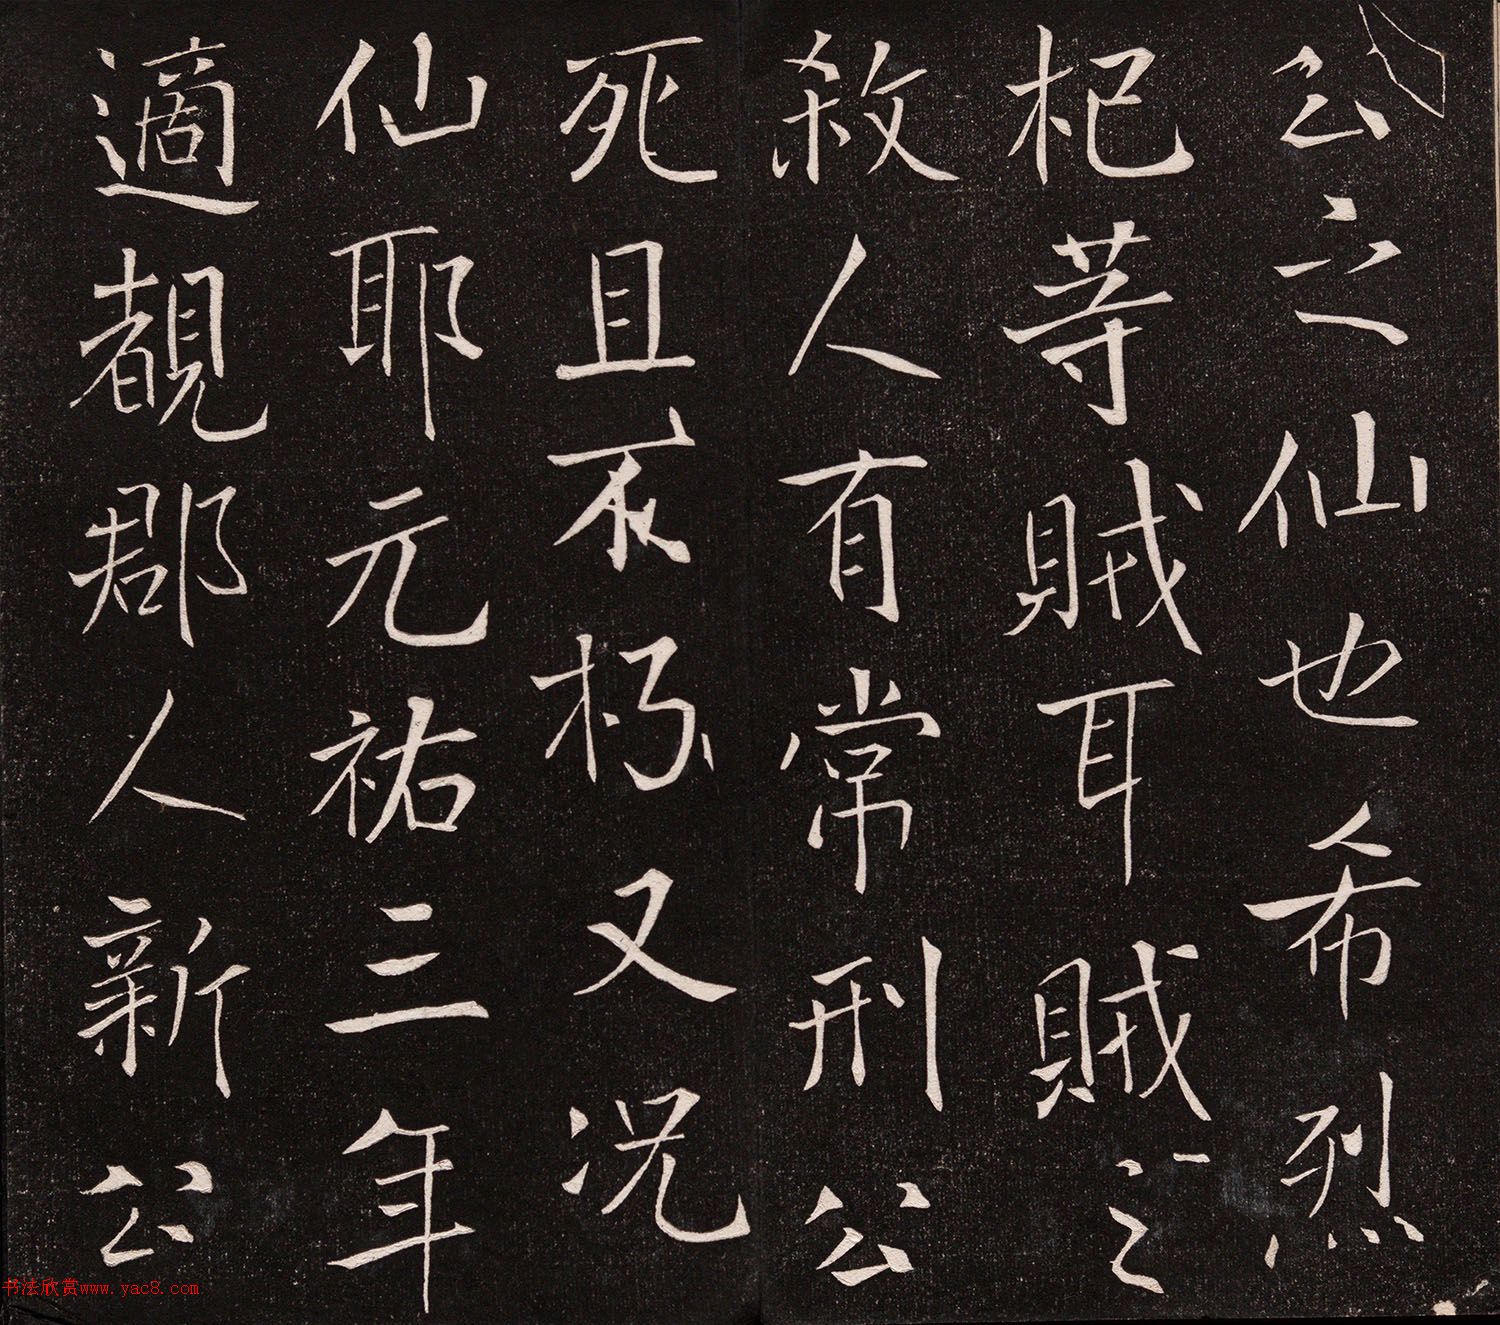 公之仙也希烈
杞等賊耳賊之
殺人有常刑公
死且不朽又況
仙耶元祐三年
適覩郡人新公
书法欣赏www.yac8.com